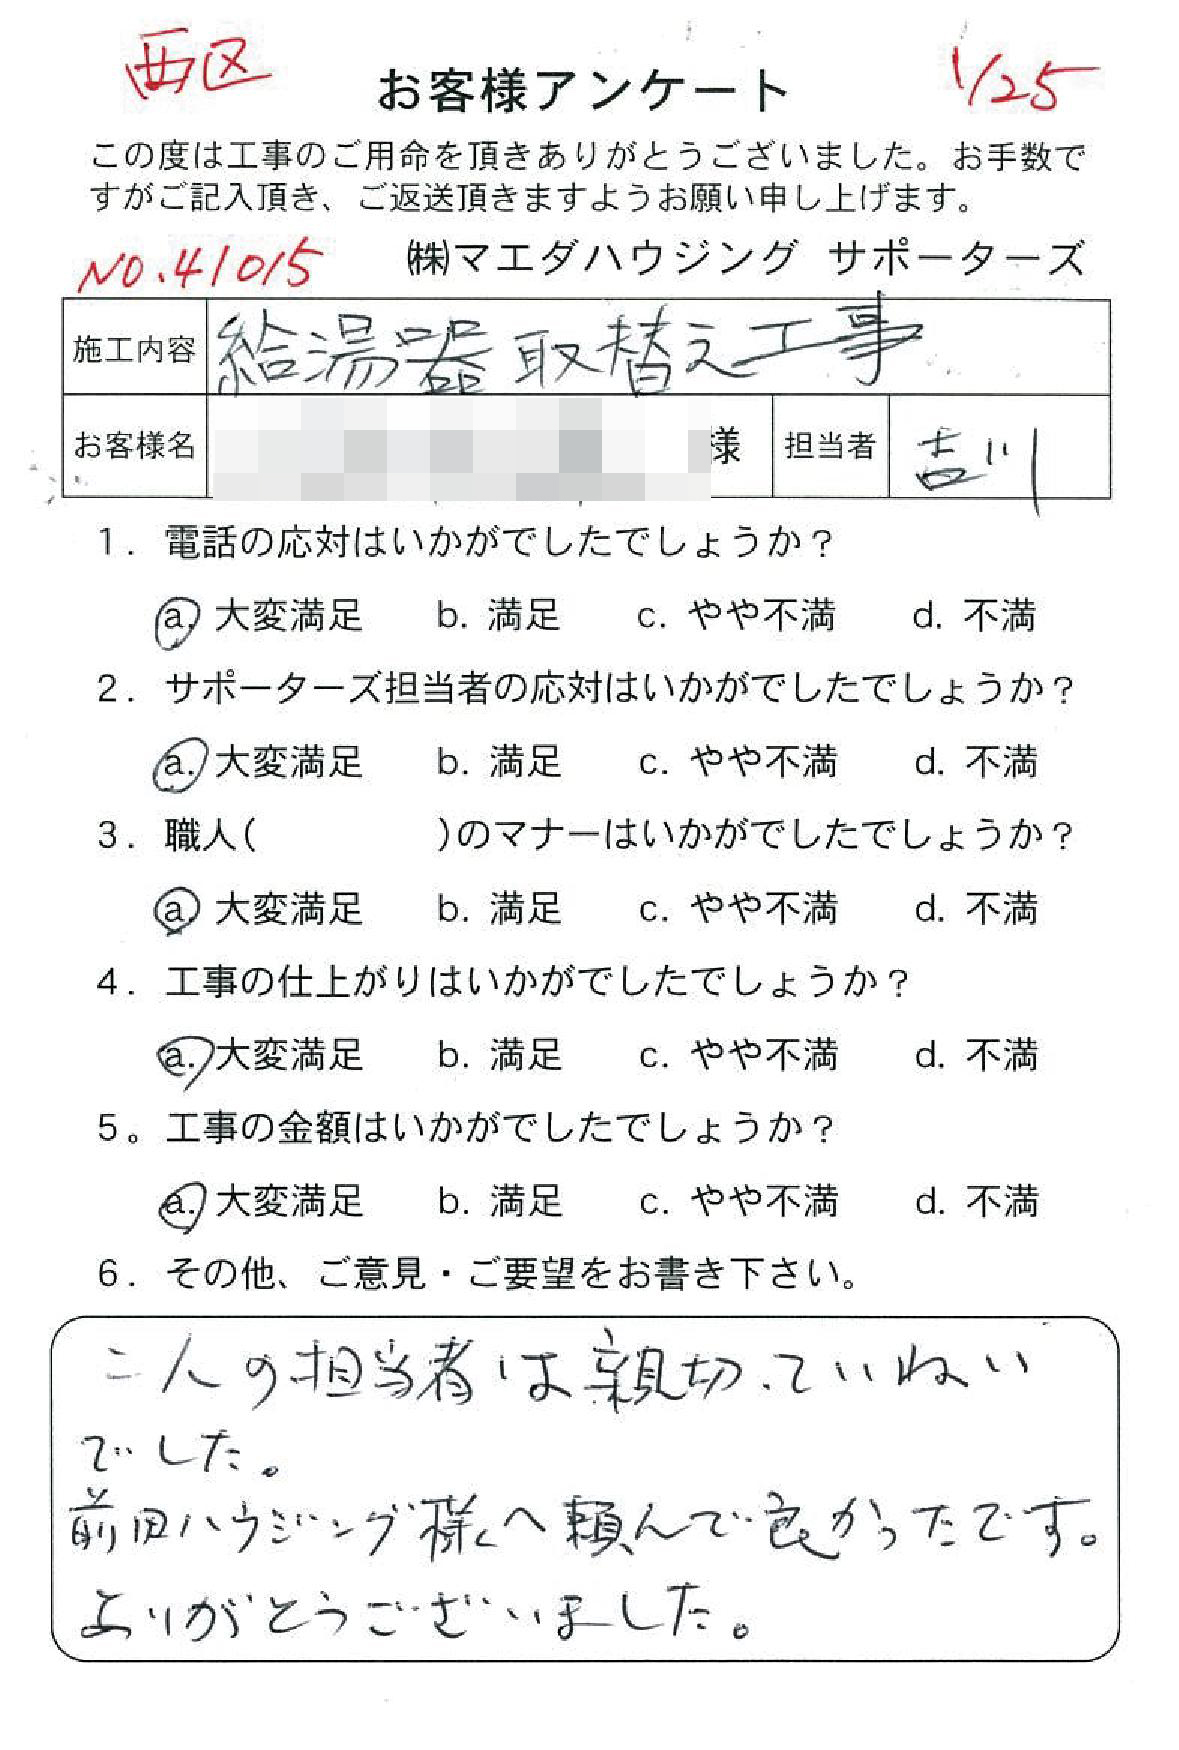 西区
1/25
お客様アンケート
この度は工事のご用命を頂きありがとうございました。お手数で
すがご記入頂き、ご返送頂きますようお願い申し上げます。
NO.41015
㈱マエダハウジング サポーターズ
施工内容 給湯器取替え工事
お客様名 様 担当者 吉川
1. 電話の応対はいかがでしたでしょうか?
a. 大変満足 b. 満足 c. やや不満 d. 不満
2. サポーターズ担当者の応対はいかがでしたでしょうか?
a. 大変満足 b. 満足 c. やや不満 d. 不満
3. 職人( )のマナーはいかがでしたでしょうか?
a. 大変満足 b. 満足 c. やや不満 d. 不満
4. 工事の仕上がりはいかがでしたでしょうか?
a. 大変満足 b. 満足 c. やや不満 d. 不満
5。工事の金額はいかがでしたでしょうか?
a. 大変満足 b. 満足 c. やや不満 d. 不満
6. その他、ご意見・ご要望をお書き下さい。
二人の担当者は親切、ていねい
でした。
前田ハウジング様へ頼んで良かったです。
ありがとうございました。